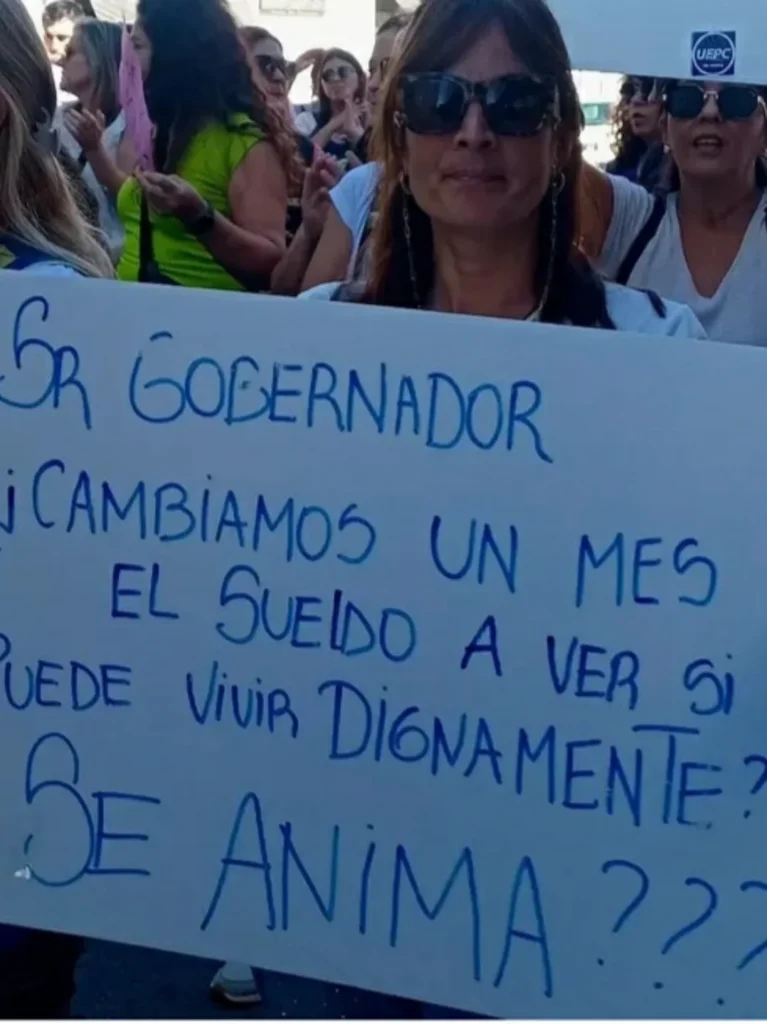 UEPC
SR GOBERNADOR
¿CAMBIAMOS UN MES
EL SUELDO A VER SI
PUEDE VIVIR DIGNAMENTE?
SE ANIMA???